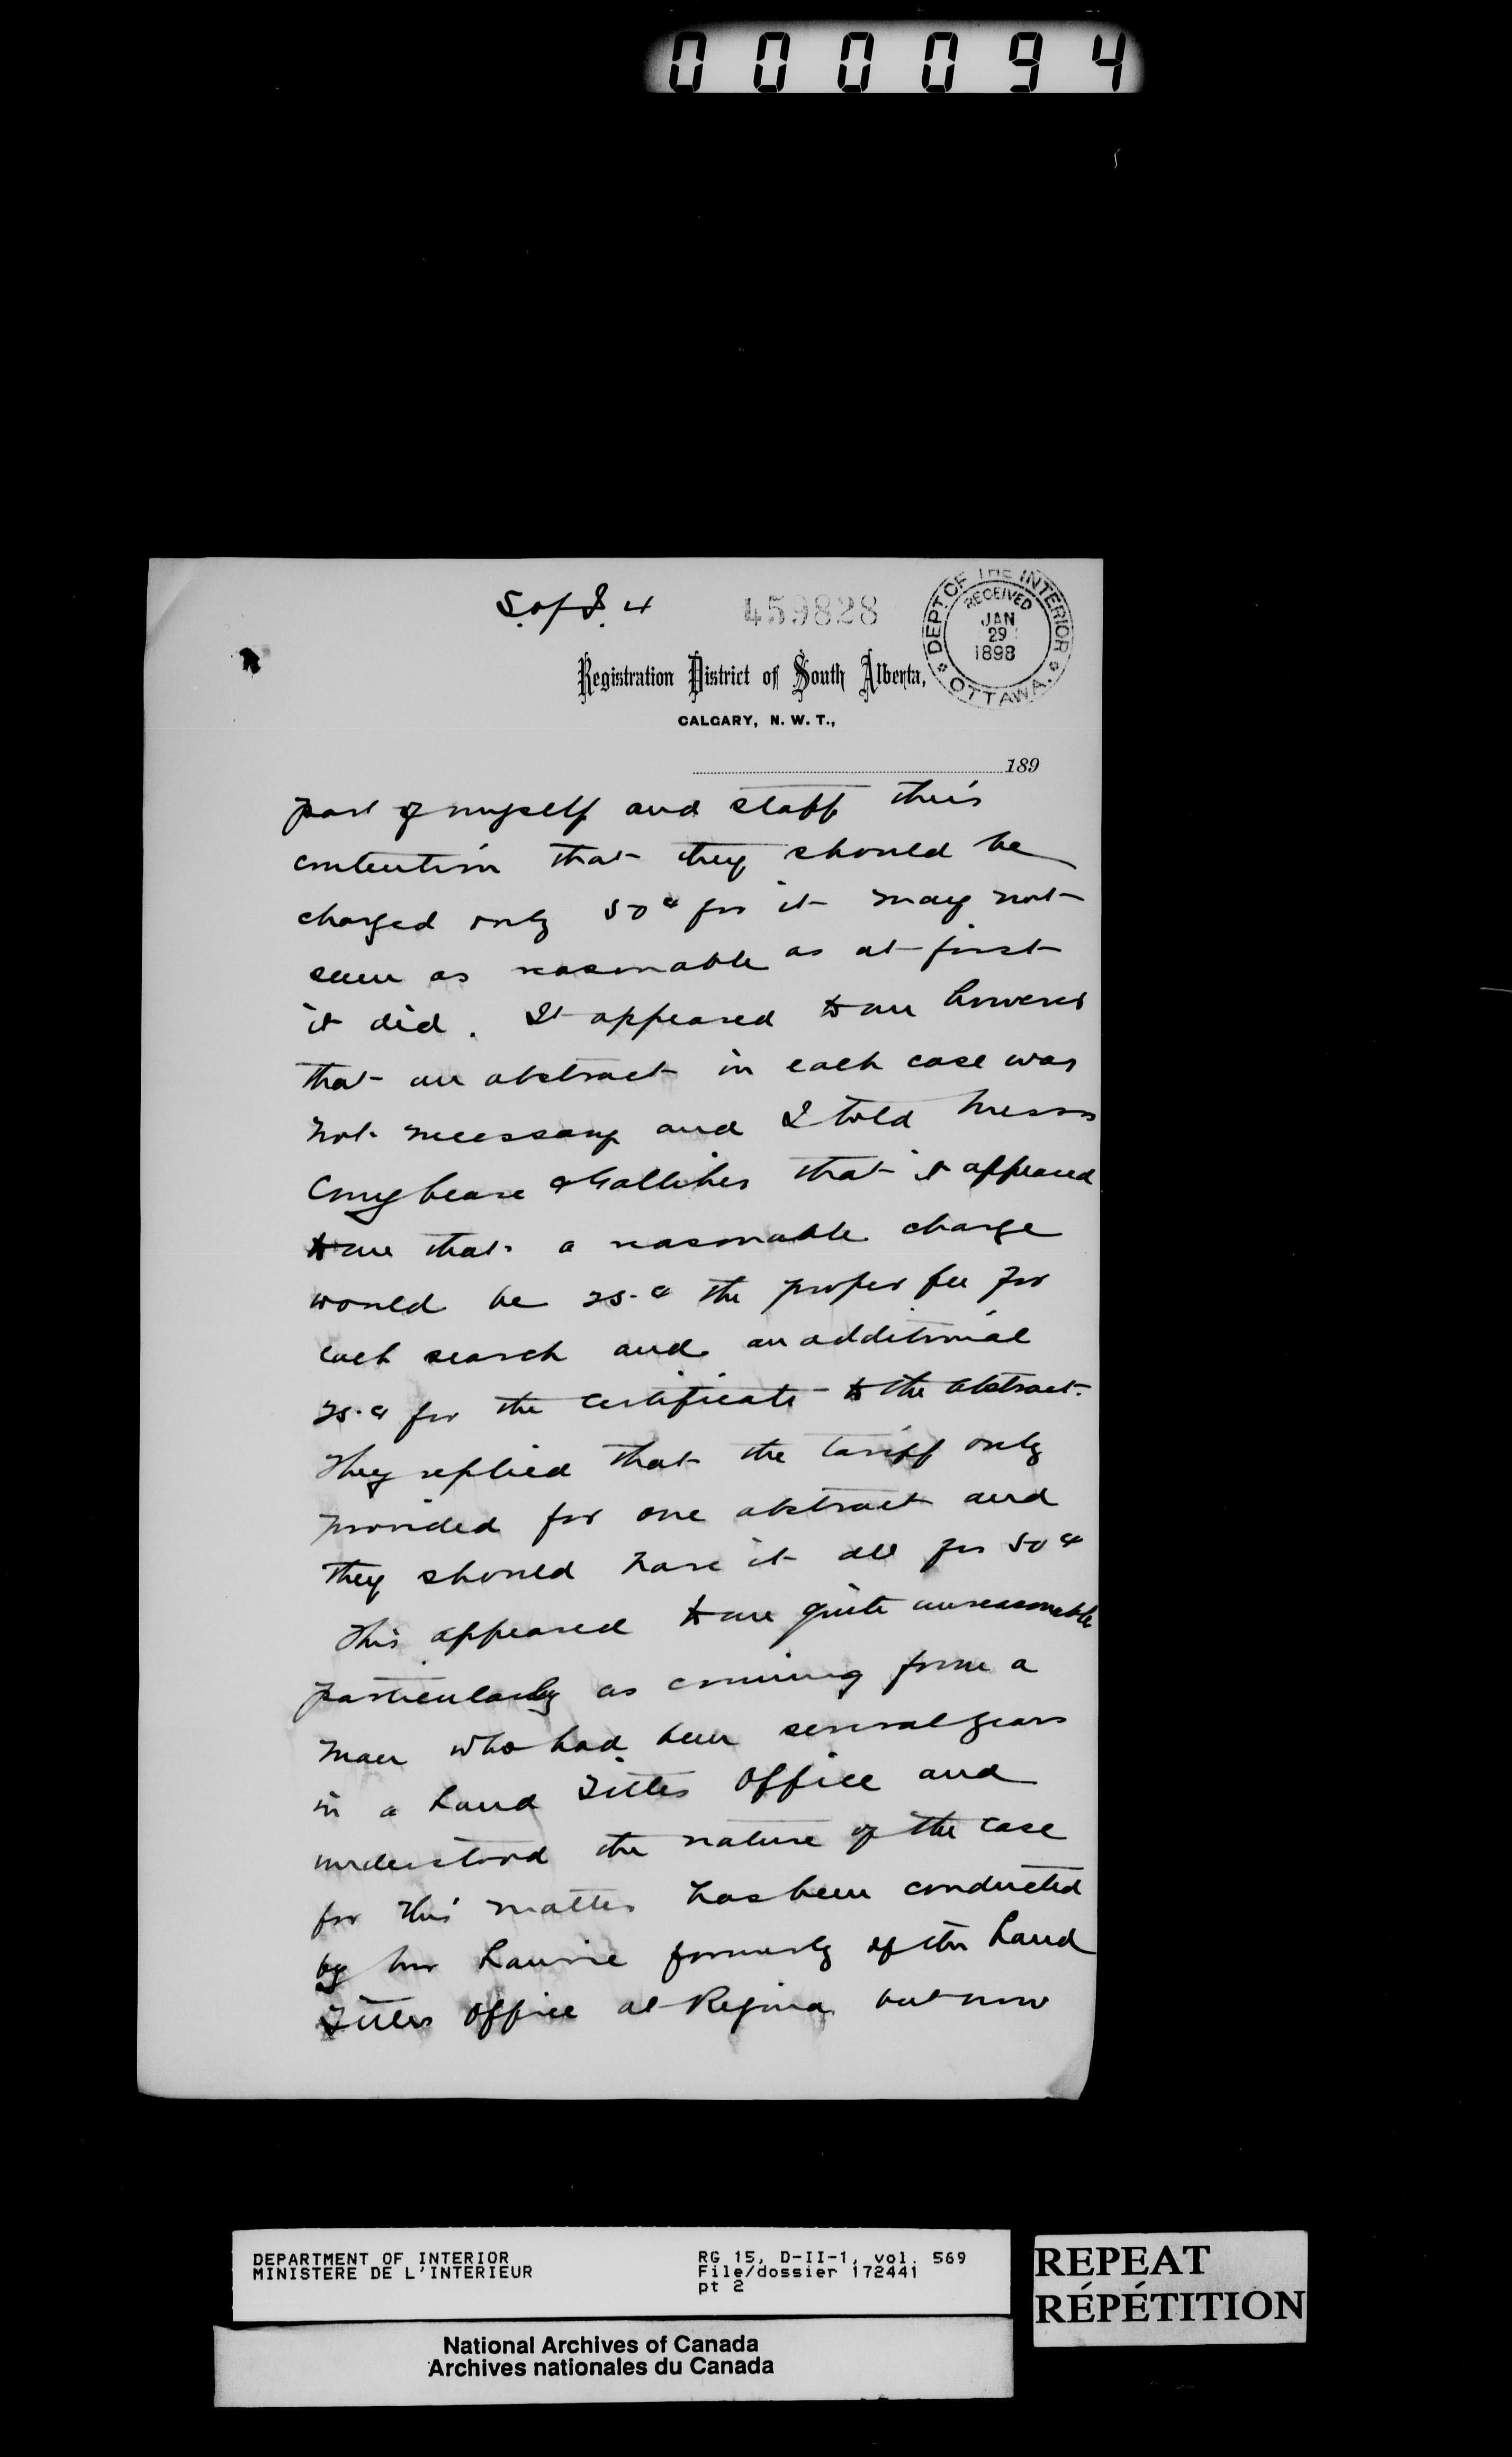 000094
S. of I. 4
459828
DEPT. OF THE INTERIOR
RECEIVED
JAN
29
1898
OTTAWA.
Registration District of South Alberta,
CALGARY, N. W. T.,
189
part of myself and staff their
contention that they should be
charged only 50¢ for it may not
seem as reasonable as at first
it did. It appeared to me however
that an abstract in each case was
not necessary and I told Messrs
Conybeare & Galliher that it appeared
to me that a reasonable charge
would be 25.¢ the proper fee for
each search and an additional
25.¢ for the certificate to the abstract.
They replied that the tariff only
provided for one abstract and
they should have it all for 50¢
This appeared to me quite unreasonable
particularly as coming from a
man who had been several years
in a Land Titles Office and
understood the nature of the case
for this matter has been conducted
by Mr Laurie formerly of the Land
Titles Office at Regina but now
DEPARTMENT OF INTERIOR
MINISTERE DE L'INTERIEUR
RG 15, D-II-1, vol. 569
File/dossier 172441
pt 2
REPEAT
RÉPÉTITION
National Archives of Canada
Archives nationales du Canada